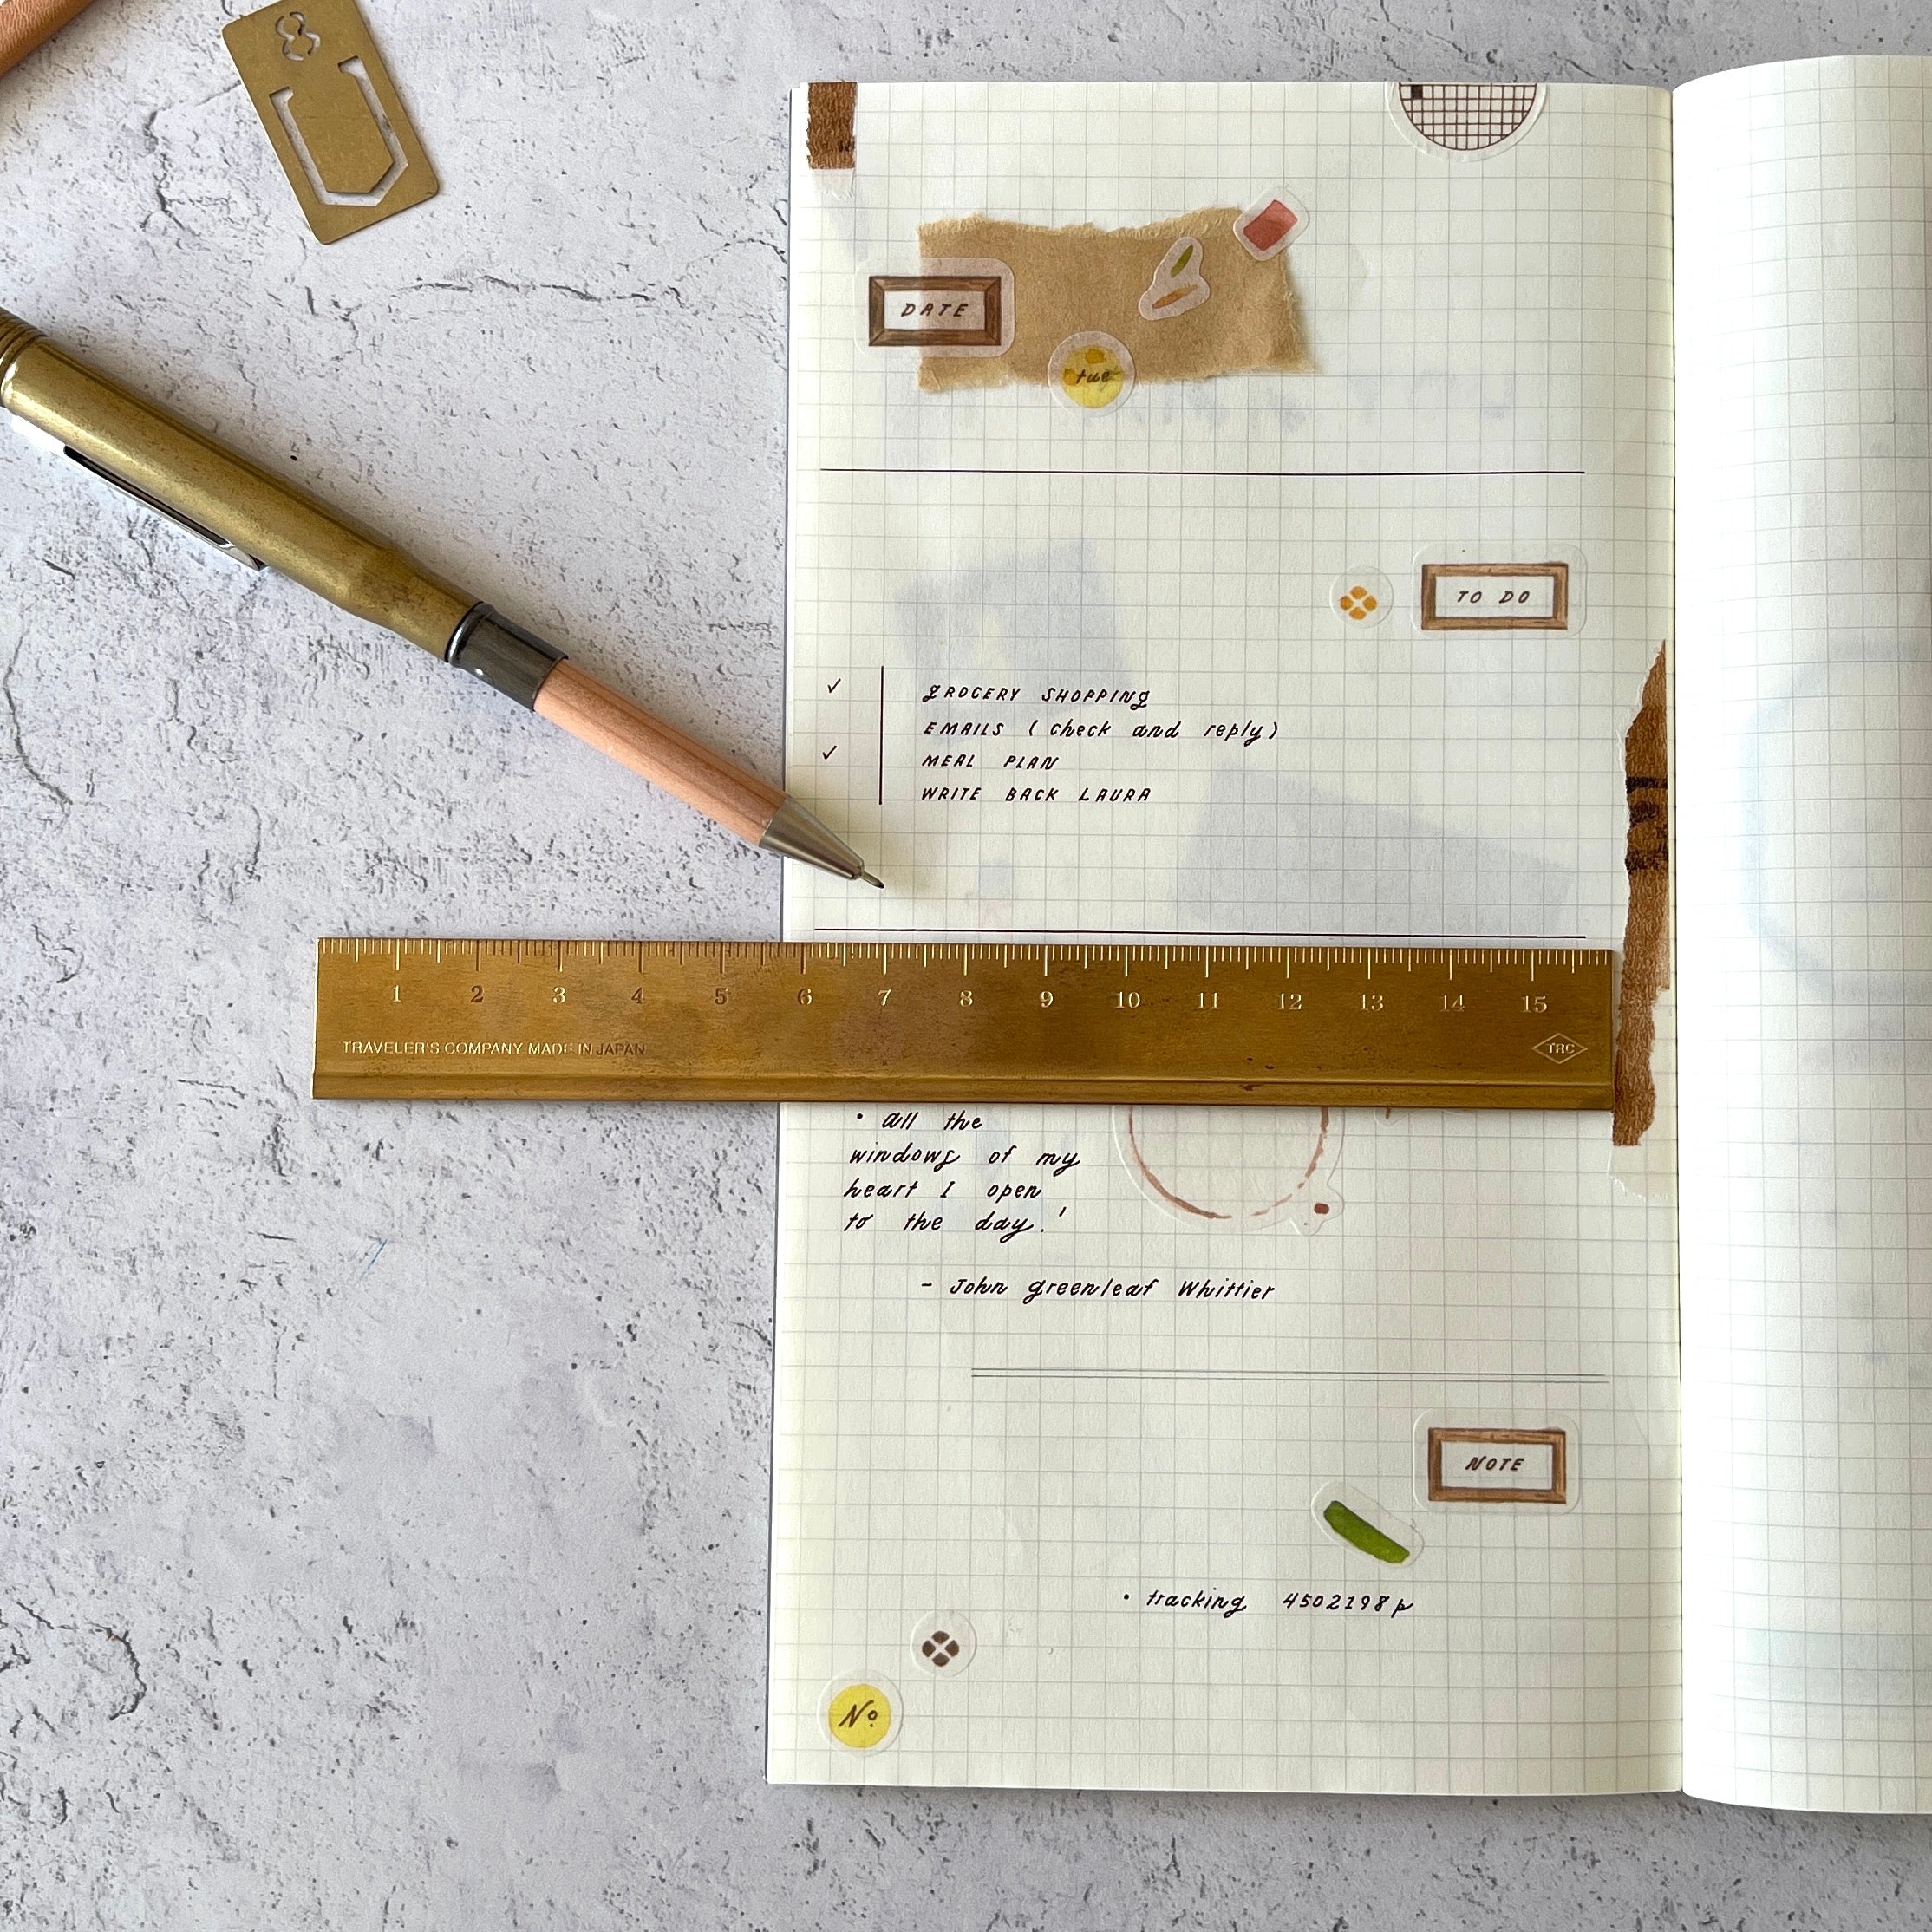 8
DATE
tue
TO DO
✓ GROCERY SHOPPING
EMAILS (check and reply)
✓ MEAL PLAN
WRITE BACK LAURA
1 2 3 4 5 6 7 8 9 10 11 12 13 14 15
TRAVELER'S COMPANY MADE IN JAPAN
TRC
' all the
windows of my
heart I open
to the day.'
- John Greenleaf Whittier
NOTE
• tracking 4502198p
Nº